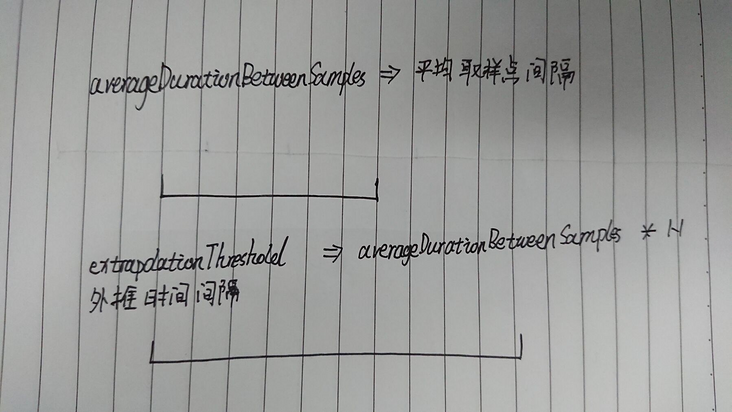 averageDurationBetweenSamples ⇒ 平均取样点间隔
extrapolationThreshold ⇒ averageDurationBetweenSamples * N
外框时间间隔